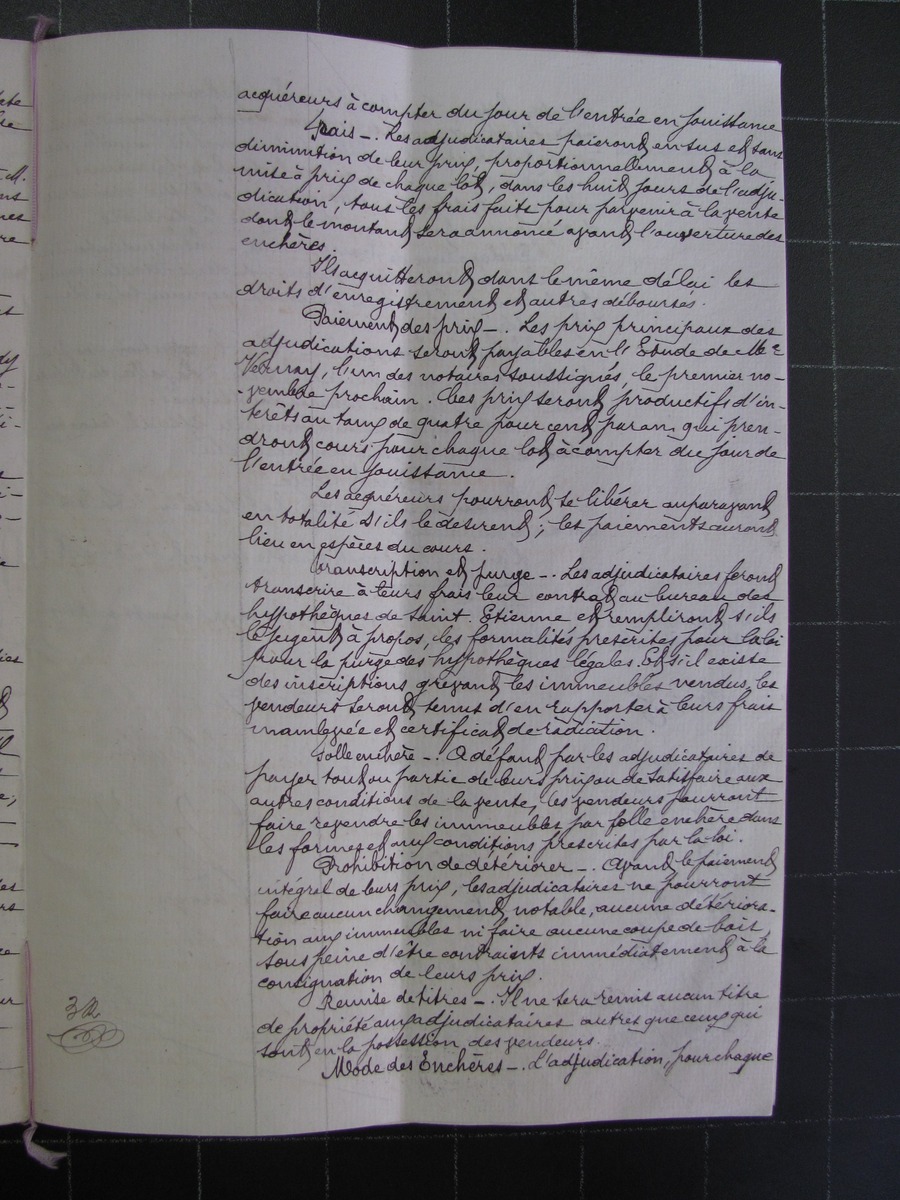 acquéreurs à compter du jour de l'entrée en jouissance
Frais -. Les adjudicataires paieront en sus et sans
diminution de leur prix, proportionnellement à la
mise à prix de chaque lot, dans les huit jours de l'adju-
dication, tous les frais faits pour parvenir à la vente
dont le montant sera annoncé avant l'ouverture des
enchères.
Ils acquitteront dans le même délai les
droits d'enregistrement et autres déboursés.
Paiement des prix -. Les prix principaux des
adjudications seront payables en l'Etude de Me
l'un des notaires soussignés, le premier no-
-vembre prochain. Ces prix seront productifs d'in-
térêts au taux de quatre pour cent par an, qui pren-
dront cours pour chaque lot à compter du jour de
l'entrée en jouissance.
Les acquéreurs pourront se libérer auparavant
en totalité s'ils le désirent; les paiements auront
lieu en espèces du cours.
Transcription et purge -. Les adjudicataires feront
transcrire à leurs frais leur contrat au bureau des
hypothèques de Saint. Etienne et rempliront s'ils
le jugent à propos, les formalités prescrites pour la loi
pour la purge des hypothèques légales. Et s'il existe
des inscriptions grevant les immeubles vendus, les
vendeurs seront tenus d'en rapporter à leurs frais
mainlevée et certificat de radiation.
Folle enchère -. A défaut par les adjudicataires de
payer tout ou partie de leurs prix ou de satisfaire aux
autres conditions de la vente, les vendeurs pourront
faire revendre les immeubles par folle enchère dans
les formes et aux conditions prescrites par la loi.
Prohibition de détériorer -. Avant le paiement
intégral de leurs prix, les adjudicataires ne pourront
faire aucun changement notable, aucune détériora-
tion aux immeubles ni faire aucune coupe de bois,
sous peine d'être contraints immédiatement à la
consignation de leurs prix.
Remise de titres -. Il ne sera remis aucun titre
de propriété aux adjudicataires autres que ceux qui
sont en la possession des vendeurs.
Mode des Enchères -. L'adjudication, pour chaque